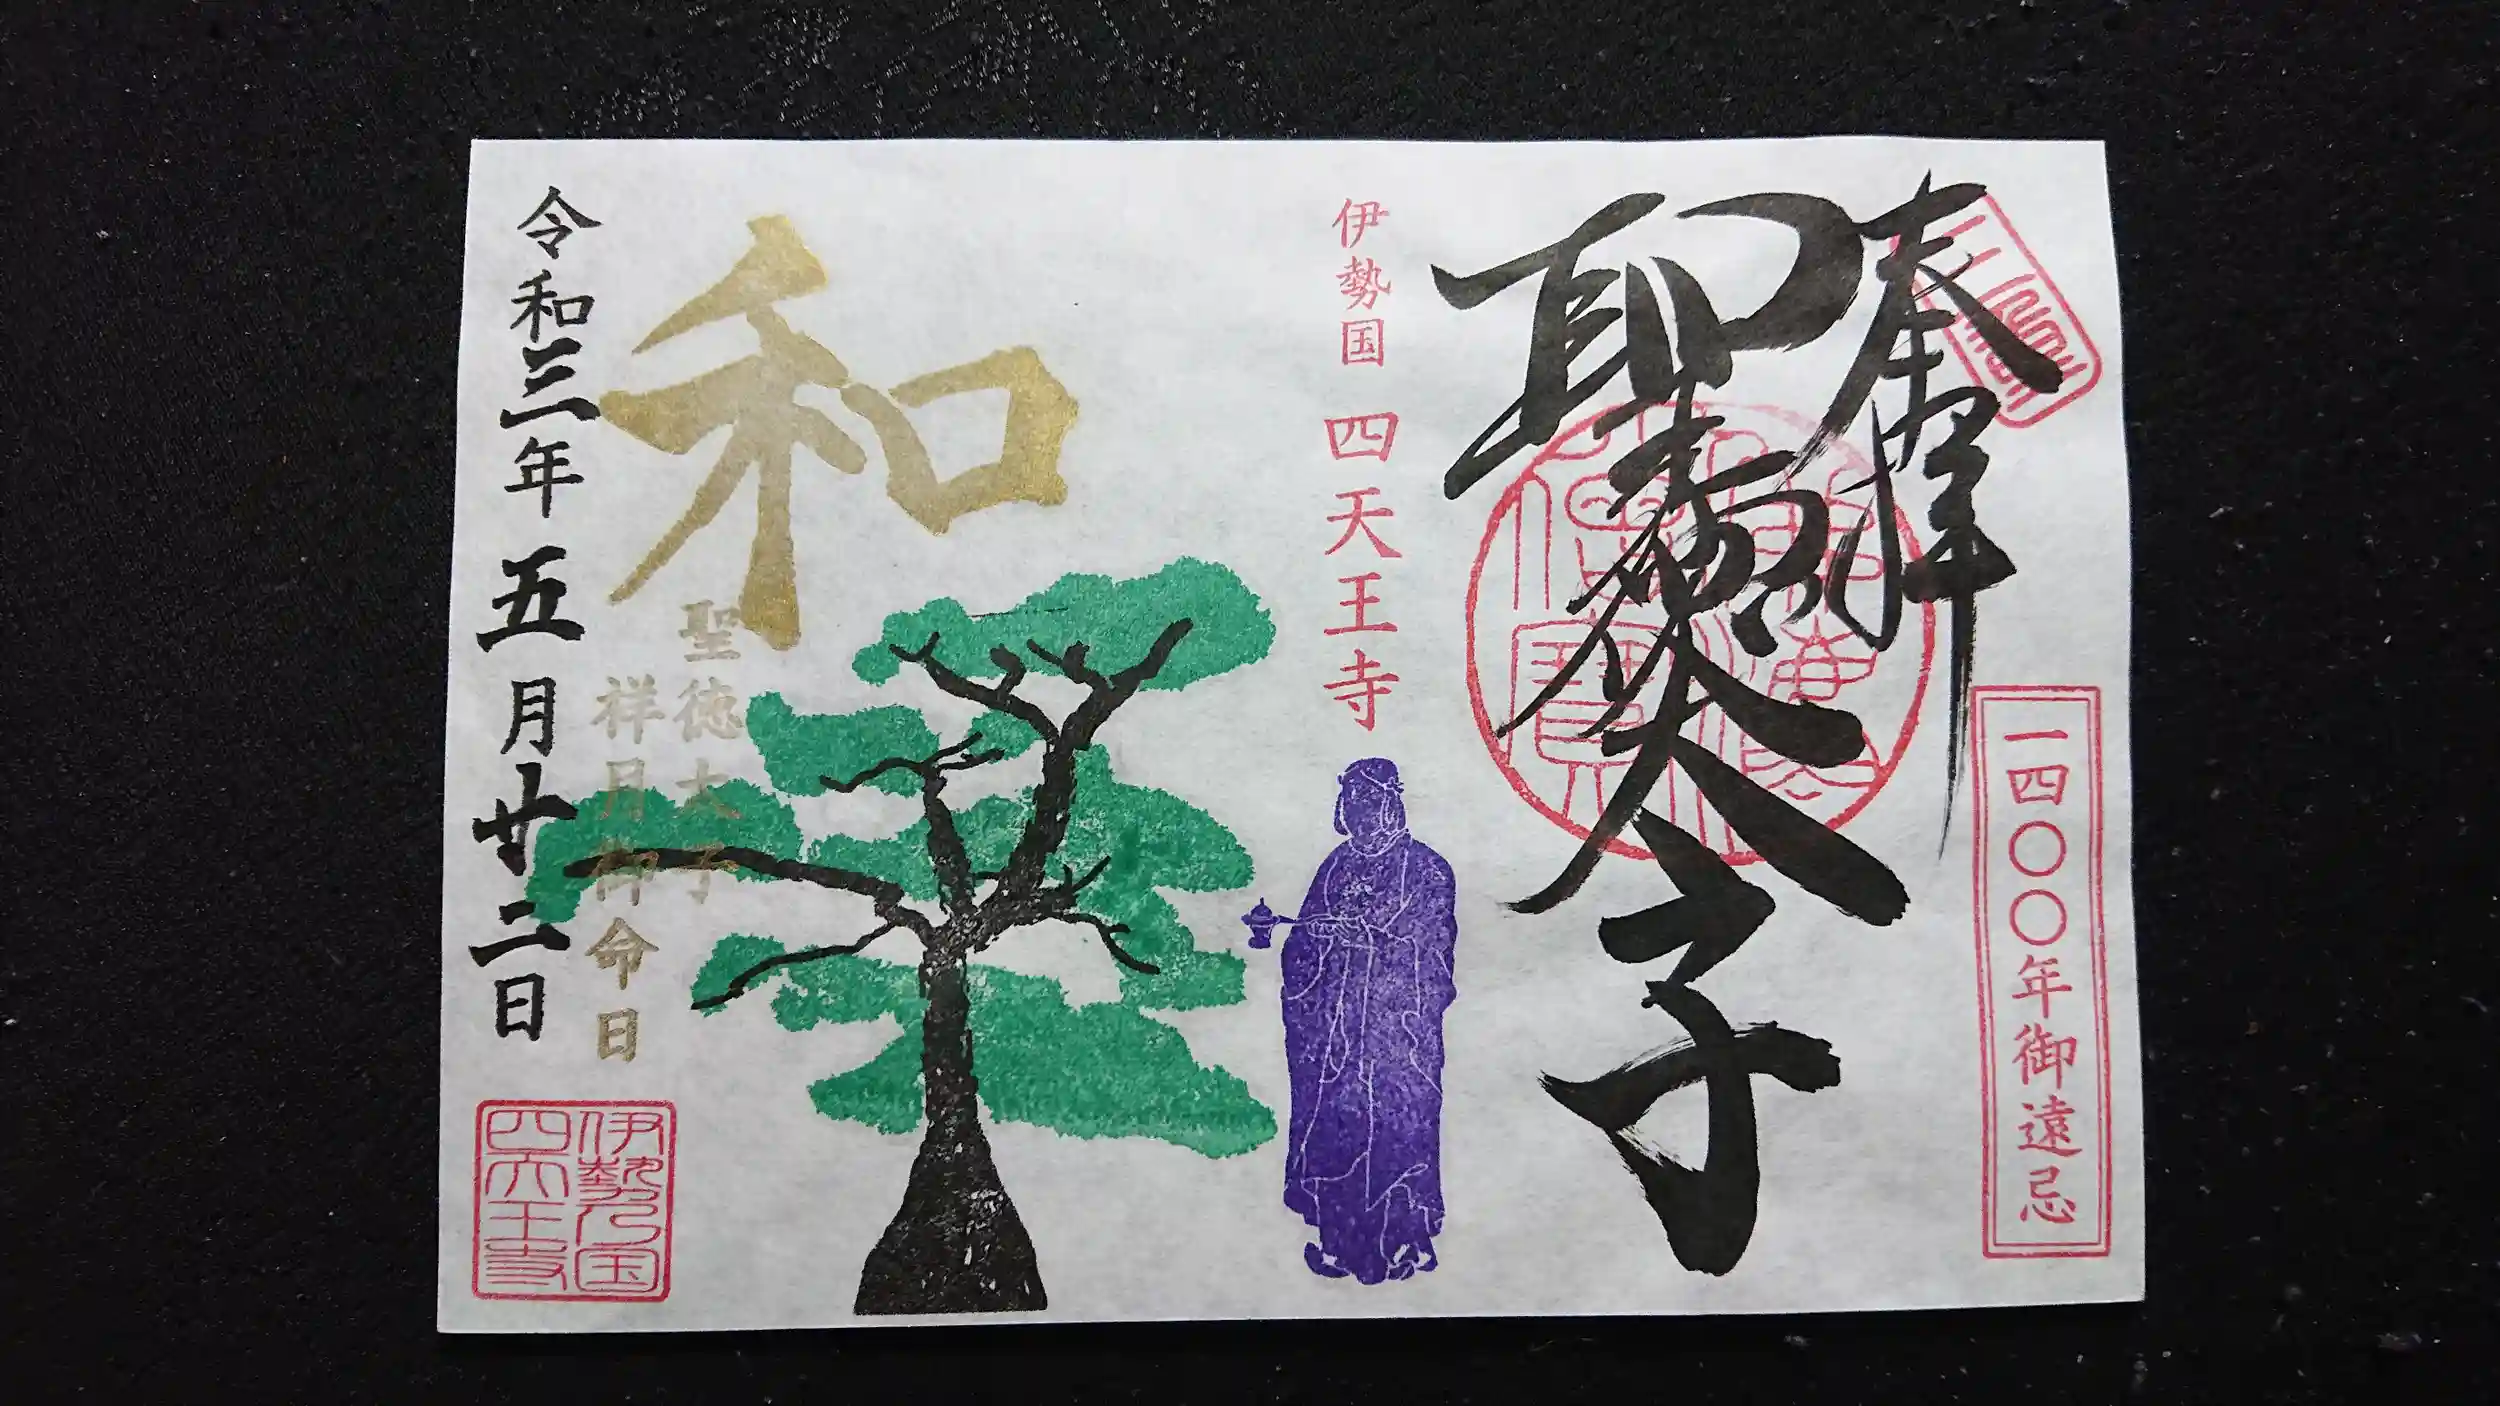 奉拝
一四〇〇年御遠忌
聖徳太子
伊勢国 四天王寺
和
聖徳太子
祥月御命日
令和三年 五月廿二日
伊勢乃国
四天王寺